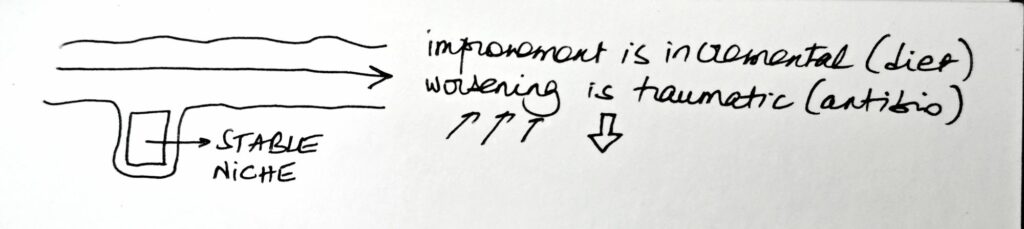 improvement is incremental (diet)
worsening is traumatic (antibio)
STABLE
NICHE